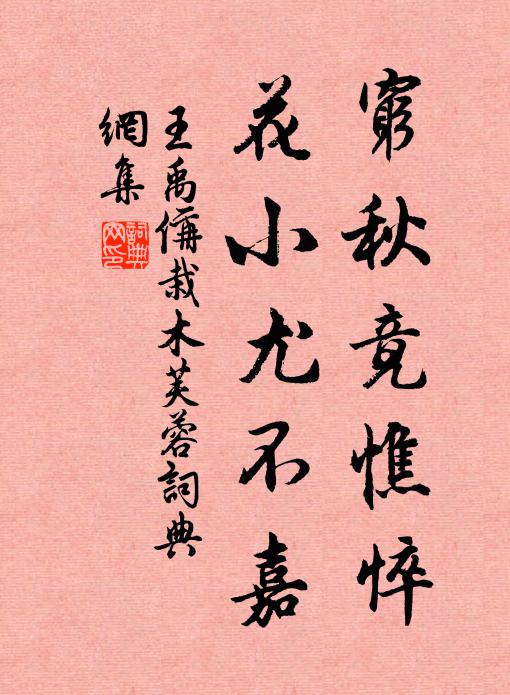 窮秋竟憔悴
花小尤不嘉
王禹偁栽木芙蓉詞典
網集
詞典
网印